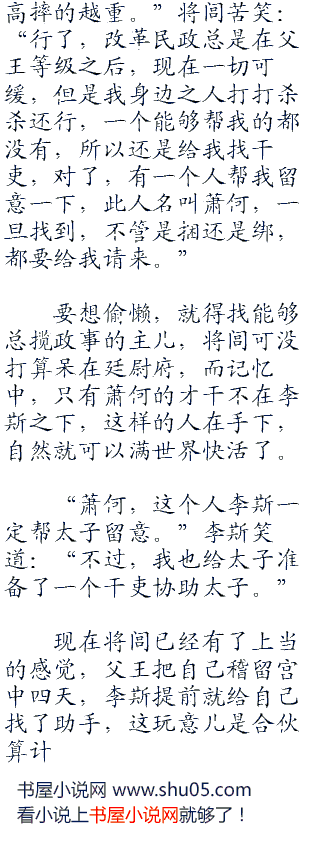 高摔的越重。”将闾苦笑：
“行了，改革民政总是在父
王等级之后，现在一切可
缓，但是我身边之人打打杀
杀还行，一个能够帮我的都
没有，所以还是给我找干
吏，对了，有一个人帮我留
意一下，此人名叫萧何，一
旦找到，不管是捆还是绑，
都要给我请来。”
要想偷懒，就得找能够
总揽政事的主儿，将闾可没
打算呆在廷尉府，而记忆
中，只有萧何的才干不在李
斯之下，这样的人在手下，
自然就可以满世界快活了。
“萧何，这个人李斯一
定帮太子留意。”李斯笑
道：“不过，我也给太子准
备了一个干吏协助太子。”
现在将闾已经有了上当
的感觉，父王把自己稽留宫
中四天，李斯提前就给自己
找了助手，这玩意儿是合伙
算计
书屋小说网 www.shu05.com
看小说上书屋小说网就够了！